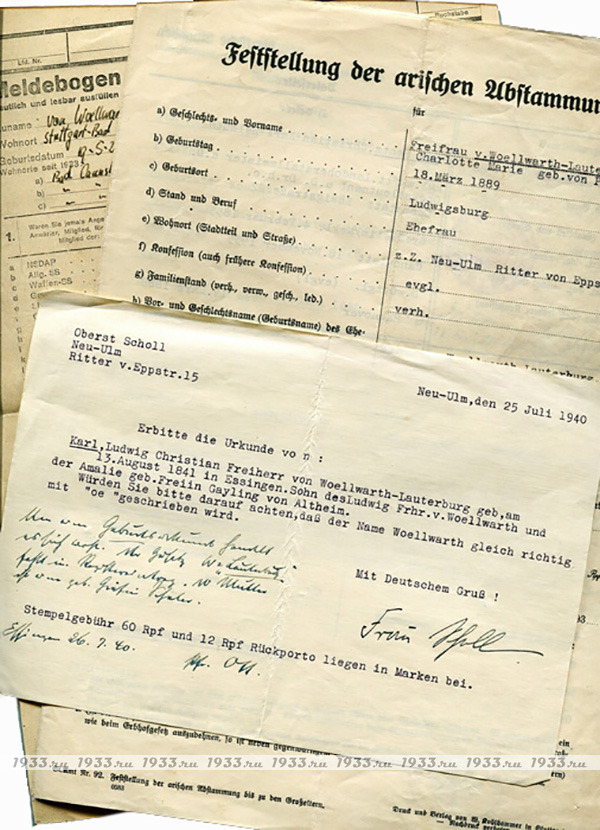 Lfd. Nr.
Meldebogen
deutlich und lesbar ausfüllen
Wohnort Stuttgart-Bad
Geburtsdatum
Wohnorte seit 1933
a)
b)
c)
1.
Waren Sie jemals
Anwärter, Mitglied
Mitglied der
a NSDAP
b Allg. SS
c Waffen-SS
Feststellung der arischen Abstammung
für
a) Geschlechts- und Vorname
Freifrau v.Woellwarth-Laute
Charlotte Marie geb.von
b) Geburtstag
18.März 1889
c) Geburtsort
Ludwigsburg
d) Stand und Beruf
Ehefrau
e) Wohnort (Stadtteil und Straße)
z.Z. Neu-Ulm Ritter von Epps
f) Konfession (auch frühere Konfession)
evgl.
g) Familienstand (verh., verw., gesch., led.)
verh.
h) Vor- und Geschlechtsname (Geburtsname) des Ehe-
Oberst Scholl
Neu-Ulm
Ritter v.Eppstr.15
Neu-Ulm,den 25 Juli 1940
Erbitte die Urkunde vo n :
Karl,Ludwig Christian Freiherr von Woellwarth-Lauterburg geb,am
13.August 1841 in Essingen.Sohn desLudwig Frhr.v.Woellwarth und
der Amalie geb.Freiin Gayling von Altheim.
Würden Sie bitte darauf achten,daß der Name Woellwarth gleich richtig
mit "oe "geschrieben wird.
Mit Deutschem Gruß !
Frau Scholl
Stempelgebühr 60 Rpf und 12 Rpf Rückporto liegen in Marken bei.
Essingen 26.7.40.
Pf. Ott.
wie beim Erbhofgesetz auszudehnen, so ist neben
1933.ru 1933.ru 1933.ru 1933.ru 1933.ru 1933.ru 1933.ru 1933.ru 1933.ru
Nr. 92. Feststellung der arischen Abstammung bis zu den Großeltern.
Druck und Verlag von W. Kohlhammer in